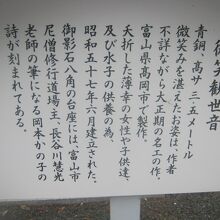 微笑観世音
青銅、高サ三・五メートル
微笑みを湛えたお姿は、作者
不詳ながら大正期の名工の作。
富山県高岡市で製作。
夭折した薄幸の女性や子供達
及び水子の供養の為、
昭和五十七年六月建立された。
御影石八角の台座には、富山市
尼僧修行道場主、長谷川慧光
老師の筆になる岡本かの子の
詩が刻まれてある。